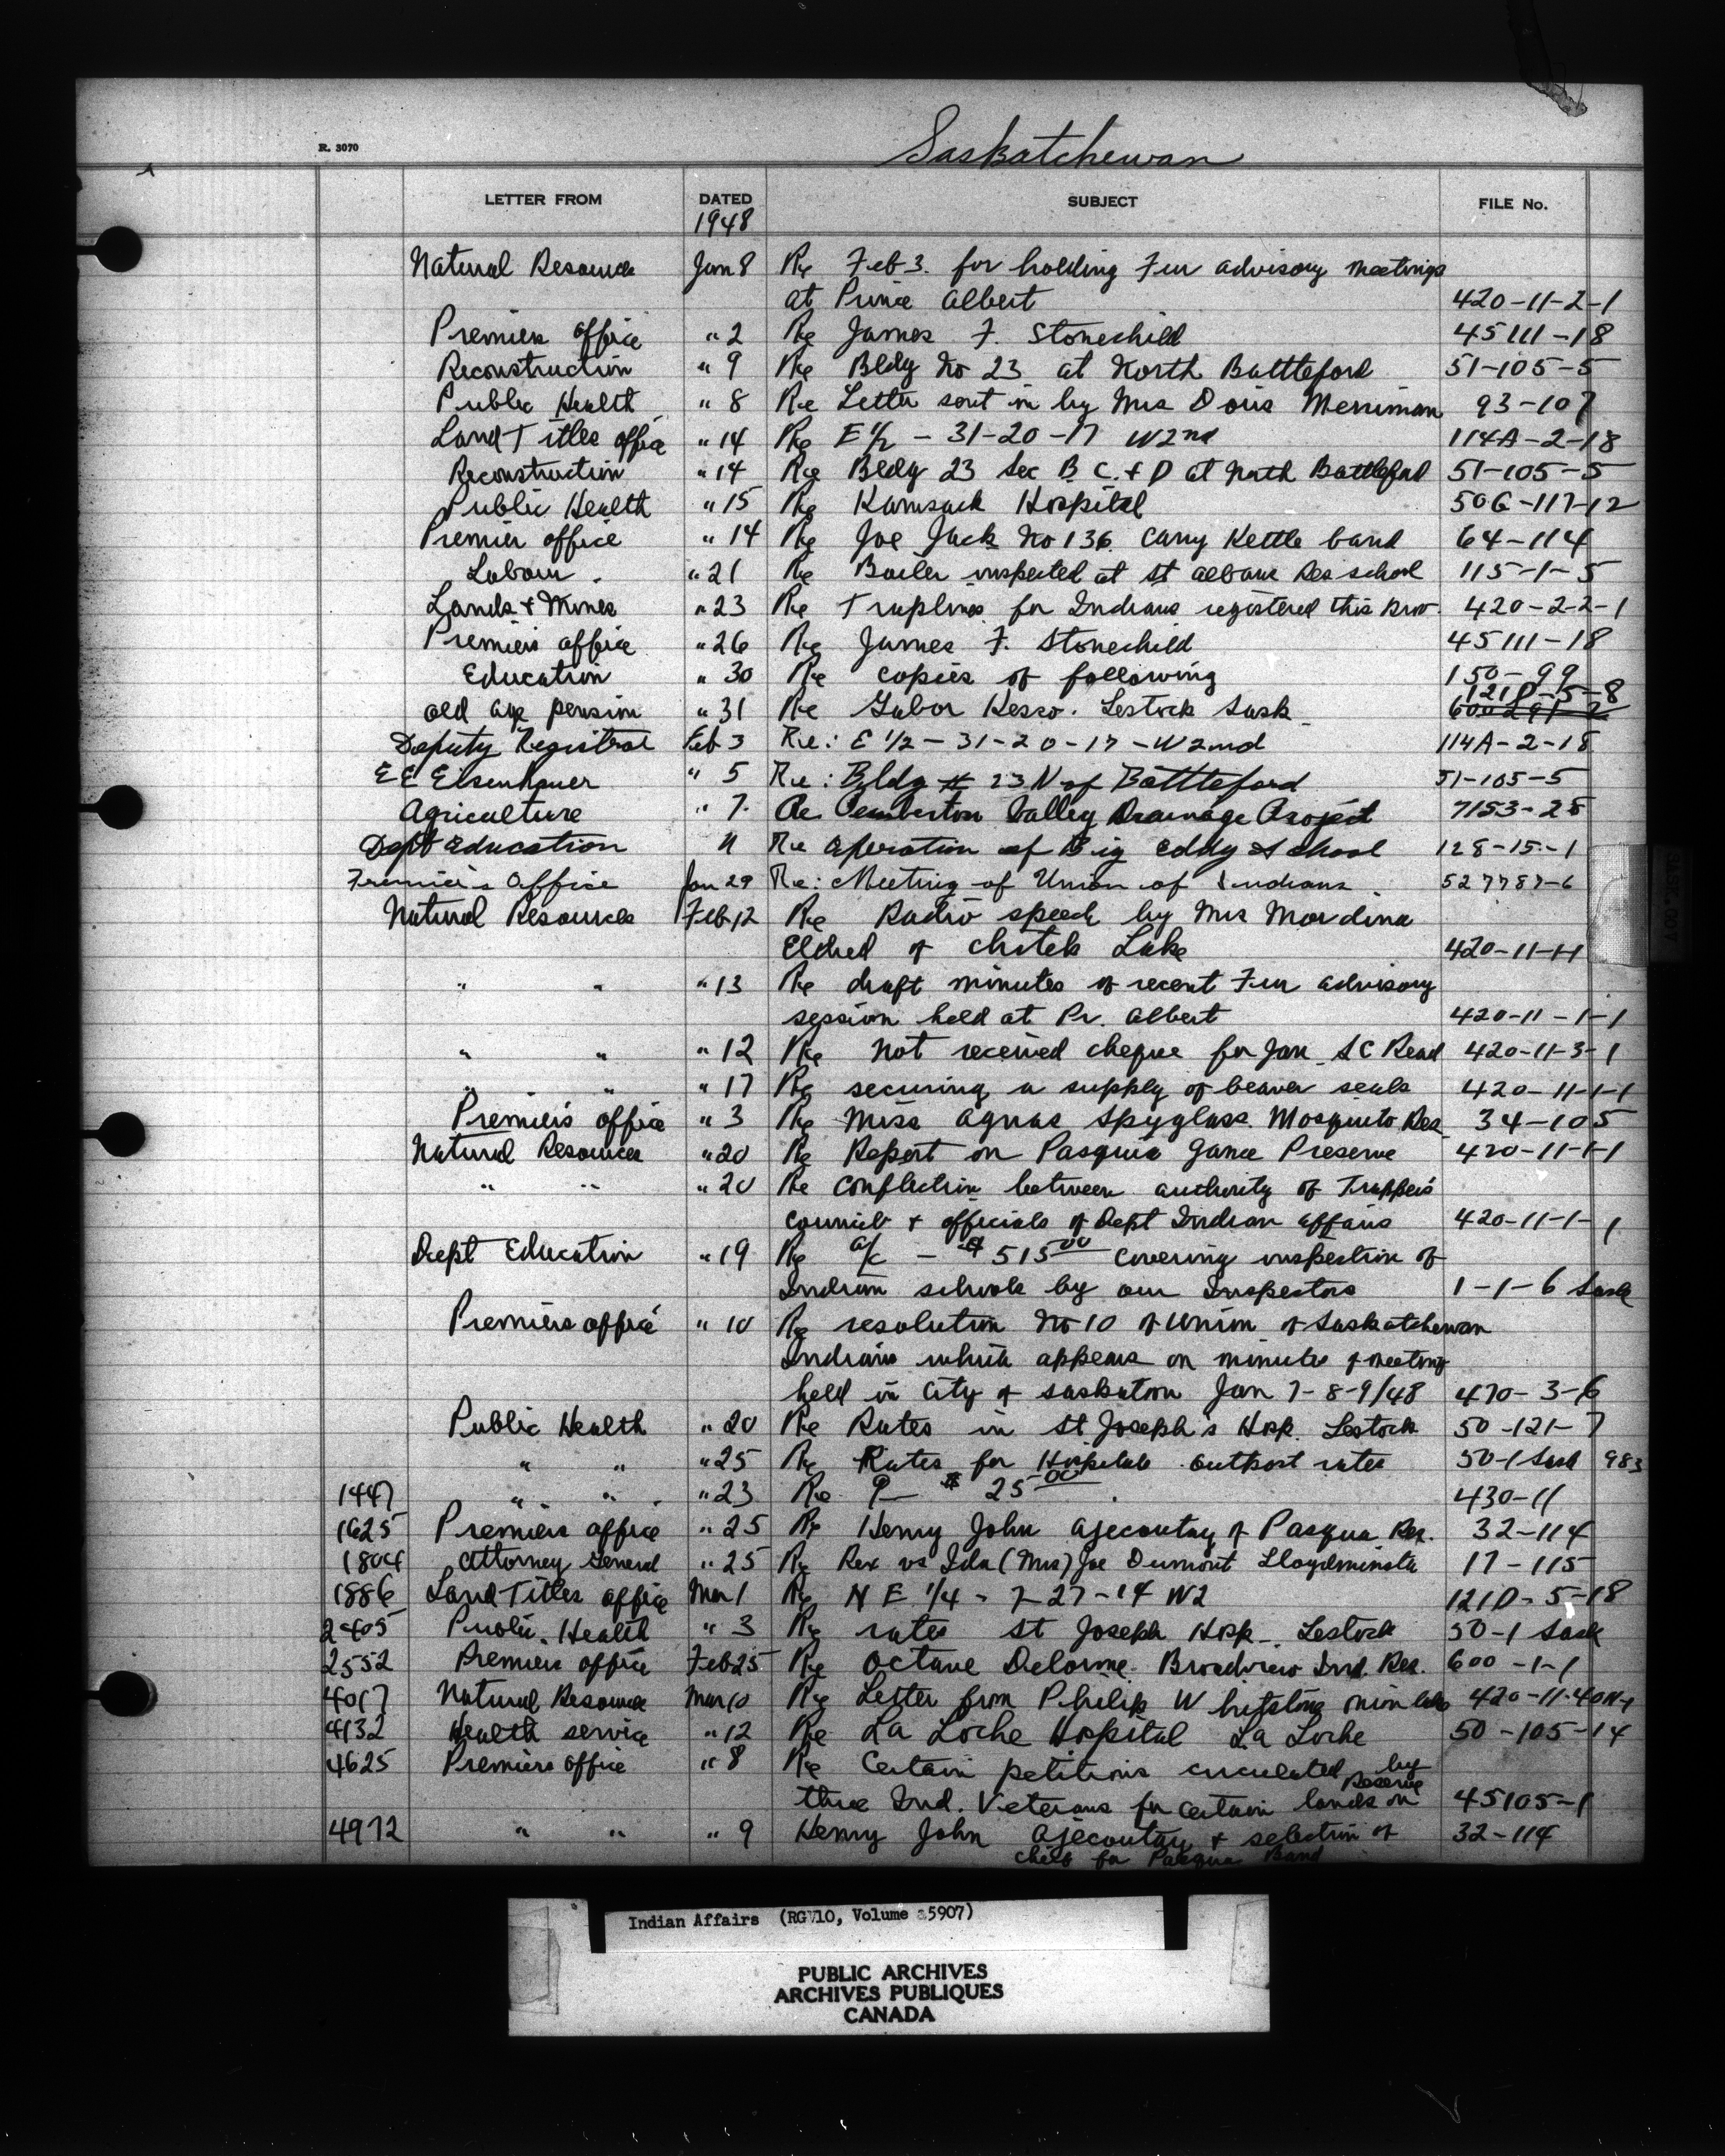 Saskatchewan
R. 3070
LETTER FROM DATED SUBJECT FILE No.
1948
Natural Resource Jan 8 Re Feb 3. for holding Fur advisory meetings
at Prince Albert 420-11-2-1
Premiers office " 2 Re James F. Stonechild 45111-18
Reconstruction " 9 Re Bldg No 23 at North Battleford 51-105-5
Public Health " 8 Re Letter sent in by Mrs Doris Merriman 93-107
Land Titles office " 14 Re E 1/2 - 31-20-17 W2nd 114A-2-18
Reconstruction " 14 Re Bldg 23 Sec B. C. & D at North Battleford 51-105-5
Public Health " 15 Re Kamsack Hospital 506-117-12
Premier office " 14 Re Joe Jack No 136 Carry Kettle band 64-114
Labour " 21 Re Boiler inspected at St Albans Res school 115-1-5
Lands & Mines " 23 Re Traplines for Indians registered this Prov. 420-2-2-1
Premiers office " 26 Re James F. Stonechild 45111-18
Education " 30 Re copies of following 150-99
121D-5-8
old age pension " 31 Re Gabor Kesco. Lestock Sask
Deputy Registrar Feb 3 Re: E 1/2 - 31-20-17-W2nd 114A-2-18
E E Eisenhauer " 5 Re: Bldg # 23 N of Battleford 51-105-5
Agriculture " 7. Re Pemberton Valley Drainage Project 7153-28
Dept Education " Re operation of Big Eddy School 128-15-1
Premier's Office Jan 29 Re: Meeting of Union of Indians. 527787-6
Natural Resources Feb 12 Re Radio speech by Mrs
Eldred of Chitek Lake 420-11-1-1
" " " 13 Re draft minutes of recent Fur advisory
session held at Pr. Albert 420-11-1-1
" " " 12 Re Not received cheque for Jan S C Read 420-11-3-1
" " " 17 Re securing a supply of beaver seals 420-11-1-1
Premier's office " 3 Re Miss Agnas Spyglass. Mosquito Res 34-105
Natural Resources " 20 Re Report on Pasquia Game Preserve 420-11-1-1
" " " 20 Re confliction between authority of Trappers
Council & officials of Dept Indian affairs 420-11-1-1
Dept Education " 19 Re a/c - $515 00 covering inspection of
Indian schools by our Inspectors 1-1-6 Sask
Premiers office " 10 Re resolution No 10 of Union of Saskatchewan
Indians which appears on minutes of meeting
held in City of Saskatoon Jan 7-8-9/48 470-3-6
Public Health " 20 Re Rates in St Joseph's Hosp. Lestock 50-121-7
" " " 25 Re Rates for Hospitals outpost rates 50-1 Sask 983
1447 " " " 23 Re $ 25 00 430-11
1625 Premiers office " 25 Re Henry John Ajecoutay of Pasqua Res. 32-114
1804 Attorney General " 25 Re Rex vs Ida (Mrs) Joe Dumont Lloydminster 17-115
1886 Land Titles office Mar 1 Re N E 1/4 - 7-27-14 W2 121D-5-18
2405 Public Health " 3 Re rates St Joseph Hosp. Lestock 50-1 Sask
2552 Premiers office Feb 25 Re Octave Delorme Broadview Ind. Res. 600-1-1
4017 Natural Resource Mar 10 Re Letter from Philip Whitstone Onion Lake
4132 Health service " 12 Re La Loche Hospital La Loche 50-105-14
4625 Premiers office " 8 Re Certain petitions circulated by
three Ind. Veterans for certain lands on Reserve 45105-1
4972 " " " 9 Henry John Ajecoutay & selection of 32-114
chief for Pasqua Band
Indian Affairs (RG 10, Volume 5907)
PUBLIC ARCHIVES
ARCHIVES PUBLIQUES
CANADA